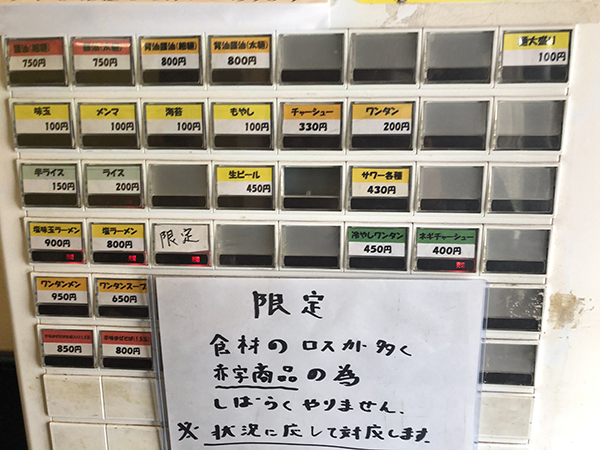 醤油(細麺) 750円
醤油(太麺) 750円
背油醤油(細麺) 800円
背油醤油(太麺) 800円
麺大盛り 100円
味玉 100円
メンマ 100円
海苔 100円
もやし 100円
チャーシュー 330円
ワンタン 200円
半ライス 150円
ライス 200円
生ビール 450円
サワー各種 430円
塩味玉ラーメン 900円
塩ラーメン 800円
限定
冷やしワンタン 450円
ネギチャーシュー 400円
ワンタンメン 950円
ワンタンスープ 650円
850円
800円
限定
食材のロスが多く
赤字商品の為
しばらくやりません.
※ 状況に応じて対応します.